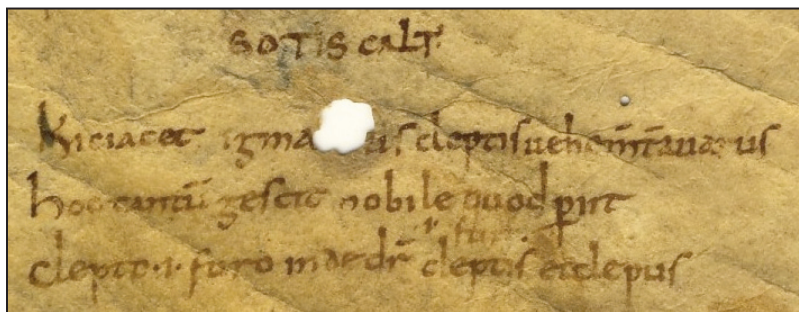 SOTIS CALT
hic iacet igma us cleptis uehem̄t̄ auarus
hoc tantū gescit nobile quod ꝑiit
.i. fur.
clepto .i. furo inde dr̄ cleptis et clepus